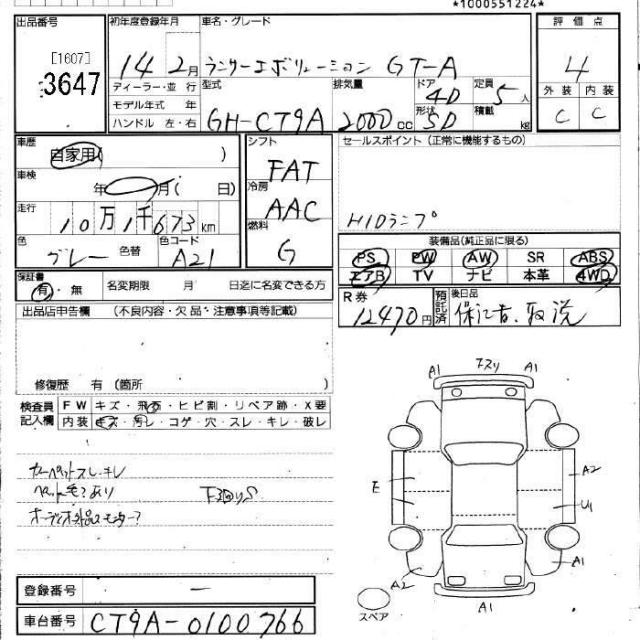 *1000551224*
出品番号 [1607] 3647
初年度登録年月 14年 2月
車名・グレード ランサーエボリューション GT-A
評価点 4
外装 C 内装 C
ディーラー・並行
モデル年式 年
ハンドル 左・右
型式 GH-CT9A
排気量 2000cc
ドア 4D
形状 SD
定員 5人
積載 kg
車歴 自家用( )
車検 年 月( 日)
走行 10万1千673km
色 グレー 色替 色コード A21
シフト FAT
冷房 AAC
燃料 G
セールスポイント (正常に機能するもの)
HIDランプ
装備品(純正品に限る)
PS PW AW SR ABS
エアB TV ナビ 本革 4WD
保証書 有・無 名変期限 月 日迄に名変できる方
R券 12470円 預託済 後日品 保証書、取説
出品店申告欄 (不良内容・欠品・注意事項等記載)
修復歴 有 (箇所 )
検査員記入欄
FW キズ・飛石・ヒビ割・リペア跡・X要
内装 キズ・汚レ・コゲ・穴・スレ・キレ・破レ
カーペットスレ・キレ
ペット毛?あり 下回りS
オーディオ外品モニター?
A1 フスリ A1
E A2
U1
A2 A1
A1
スペア
登録番号 ー
車台番号 CT9A-0100766